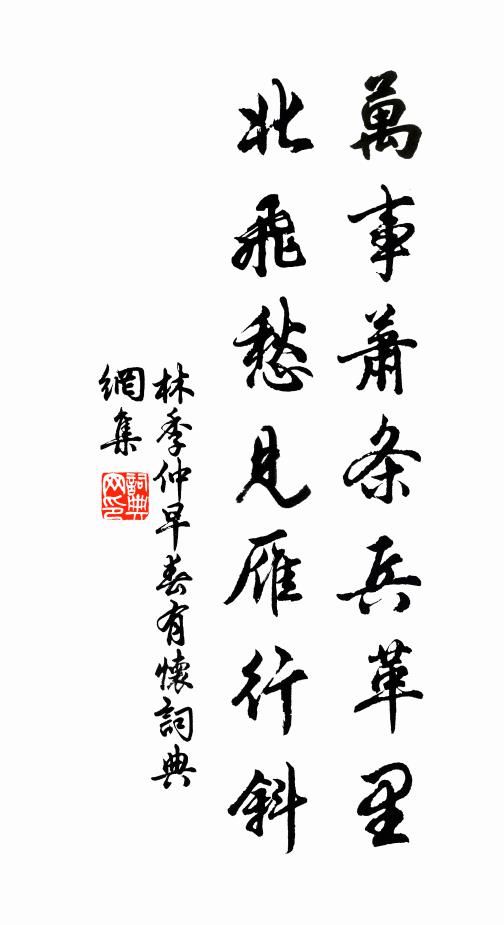 萬事蕭条兵革里
北飛愁見雁行斜
林季仲早春有懷詞典
網集
詞典
网印